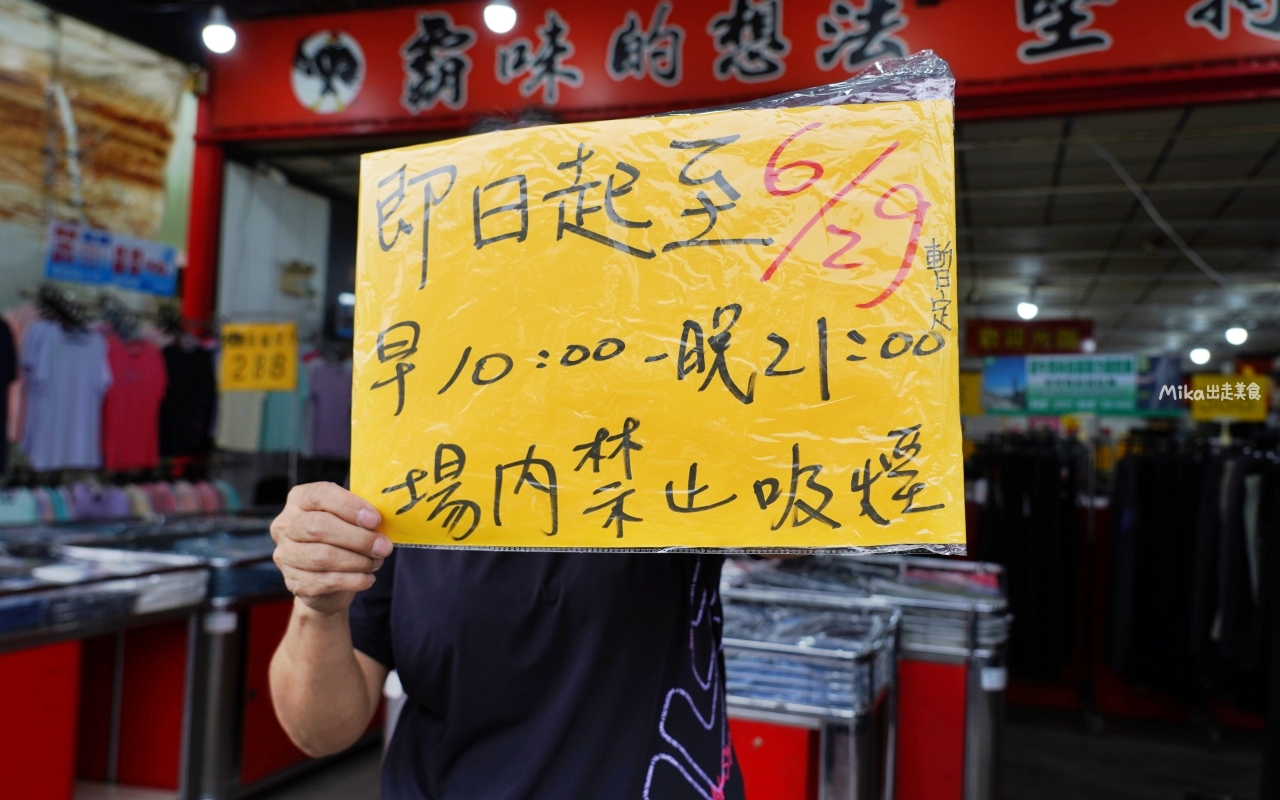 霸味的想法堅持
即日起至6/29
暫定
早10:00-晚21:00
場內禁止吸煙
288
歡迎光臨
Mika出走美食